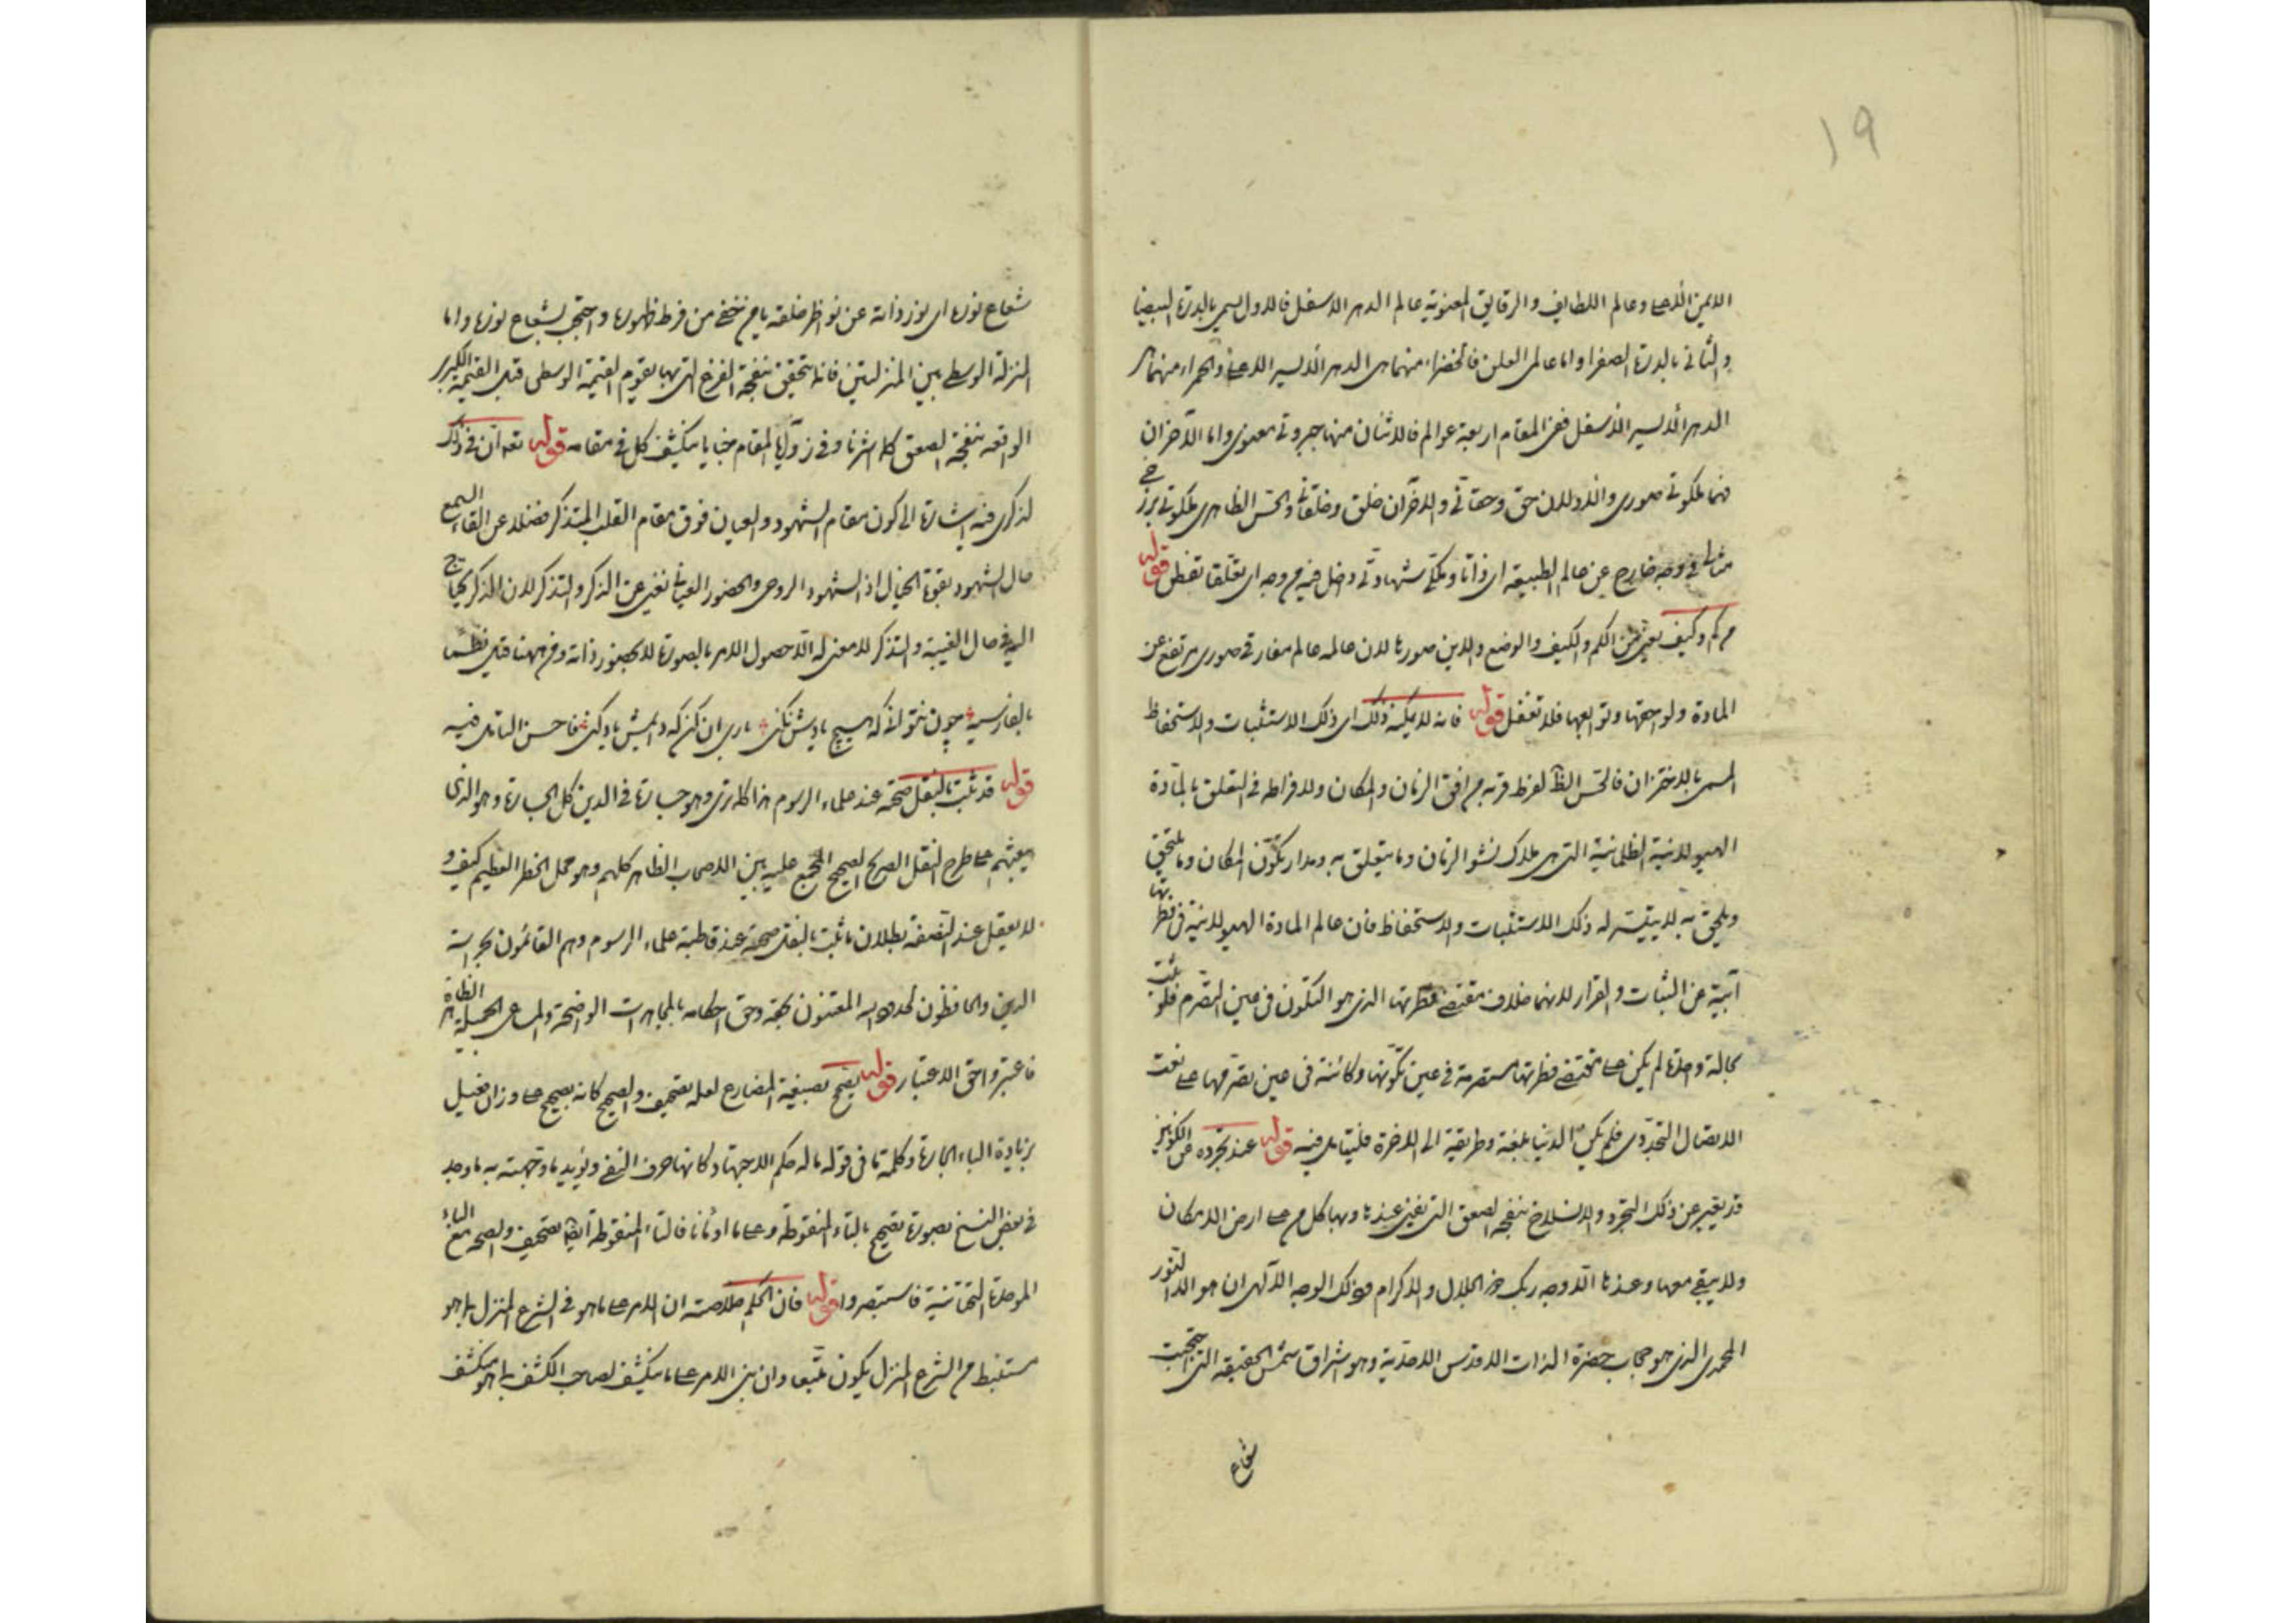 ١٩
الايمن الأعلى وعالم اللطايف والرقايق المعنوية عالم الدهر الاسفل فالاول يسمى بالدرة البيضا
والثانى بالدرة الصفرا واما عالمى العلن فالخضراء منهما هى الدهر الأيسر الاعلى والحمراء منهما
الدهر الأيسر الأسفل ففى المقام اربعة عوالم فالاثنان منها جبروتى معنوى واما الآخران
فهما ملكوتى صورى والاولان حق وحقانى والاخران خلق وخلقانى والحس الظاهرى ملكوتى برزخى
فى وجه خارج عن عالم الطبيعة اى ذاتا وملكى شهادتى داخل فيه من وجه اى تعلقا تفطن قوله
من كم وكيف يعنى من الكم والكيف والوضع والاين صورها لان عالمه عالم مفارقى صورى مرتفع عن
المادة ولواحقها وتوابعها فلا تغفل قوله فانه لا يمكنه ذلك اى ذلك الاستثبات والاستحفاظ
المسمى بالاختزان فالحس الظ لفرط قربه من افق الزمان والمكان ولافراطه فى التعلق بالمادة
الهيولانية الظلمانية التى هى ملاك نشو الزمان وما يتعلق به ومدار تكون المكان وما يلتحق
ويلحق به لا يتيسر له ذلك الاستثبات والاستحفاظ فان عالم المادة الهيولانية فى فطرتها
آبية عن الثبات والقرار لانهما خلاف مقتضى فطرتها الذى هو التكون فى عين التصرم فلو ثبتت
بحالة واحدة لم يكن على مقتضى فطرتها متصرمة فى عين تكونها وكائنة فى عين تصرمها على نعت
الاتصال التجددى فلم يكن الدنيا بلغة وطريقة الى الاخرة فليتامل فيه قوله عند تجرده عن الكونين
قد يعبر عن ذلك التجرد والانسلاخ بنفخة الصعق التى تفنى عندها وبها كل من على ارض الامكان
ولا يبقى معها وعندها الا وجه ربك ذو الجلال والاكرام وذلك الوجه الآلهى ان هو الا النور
المحمدى الذى هو حجاب حضرة الذات الاقدس الاحدية وهو اشراق شمس الحقيقة التى احتجبت
شعاع
شعاع نورها اى نور ذاته عن نواظر خلقه يا من خفى من فرط ظهوره واحتجب بشعاع نوره واما
المنزلة الوسطى بين المنزلتين فانها يتحقق بنفخة الفزع التى بها يقوم القيمة الوسطى قبل القيمة الكبرى
الواقعة بنفخة الصعق كما اشرنا وفى زوايا المقام خبايا ينكشف كل فى مقامه قوله تعه ان فى ذلك
لذكرى فيه اشارة الى كون مقام الشهود والعيان فوق مقام القلب المتذكر فضلا عن القاء السمع
حال الشهود بقوة الخيال اذ الشهود الروحى والحضور العيانى تغنى عن الذكر والتذكر لان الذكر يحتاج
اليه فى حال الغيبة والتذكر لا معنى له الا حصول الامر بالصورة لا بحضور ذاته ومن ههنا قيل نظما
بالفارسية چون نتوانى كه هيچ يادش نكنى بارى آن كن كه دايمش ياد كنى فاحسن التامل فيه
قوله قد ثبت بالنقل صحته عند علماء الرسوم هذا كما ترى وهو جسارة فى الدين كل الجسارة وهو الذى
يبعثهم على طرح النقل الصريح الصحيح المجمع عليه بين الاصحاب الظاهر كلهم وهو محل الخطر العظيم كيف و
لا يعقل عند النصفة بطلان ما ثبت بالنقل صحته عند قاطبة علماء الرسوم وهم القائمون بحراسة
الدين والحافظون لحدوده المعتنون بحقه وحق احكامه بالمجاهدات الواضحة والمساعى الجميلة الظاهرة
فاعتبروا حق الاعتبار قوله يصح بصيغة المضارع لعله تصحيف والصحيح كانه بصحيح على وزان فعيل
بزيادة الباء الجارة وكلمة ما فى قوله ما له حكم الاجتهاد كانها حرف النفى ويؤيد ما وجهته به ما وجد
فى بعض النسخ بصورة تصحيح بالتاء المنقوطة وعلى ما اومأنا فالتاء المنقوطة ايضا تصحيف والصحة مع الباء
الموحدة التحتانية فاستبصروا قوله فان الحكم خلاصته ان الامر على ما هو فى الشرع المنزل بما هو
مستنبط من الشرع المنزل يكون متبعا وان بنى الامر على ما ينكشف لصاحب الكشف بما هو منكشف